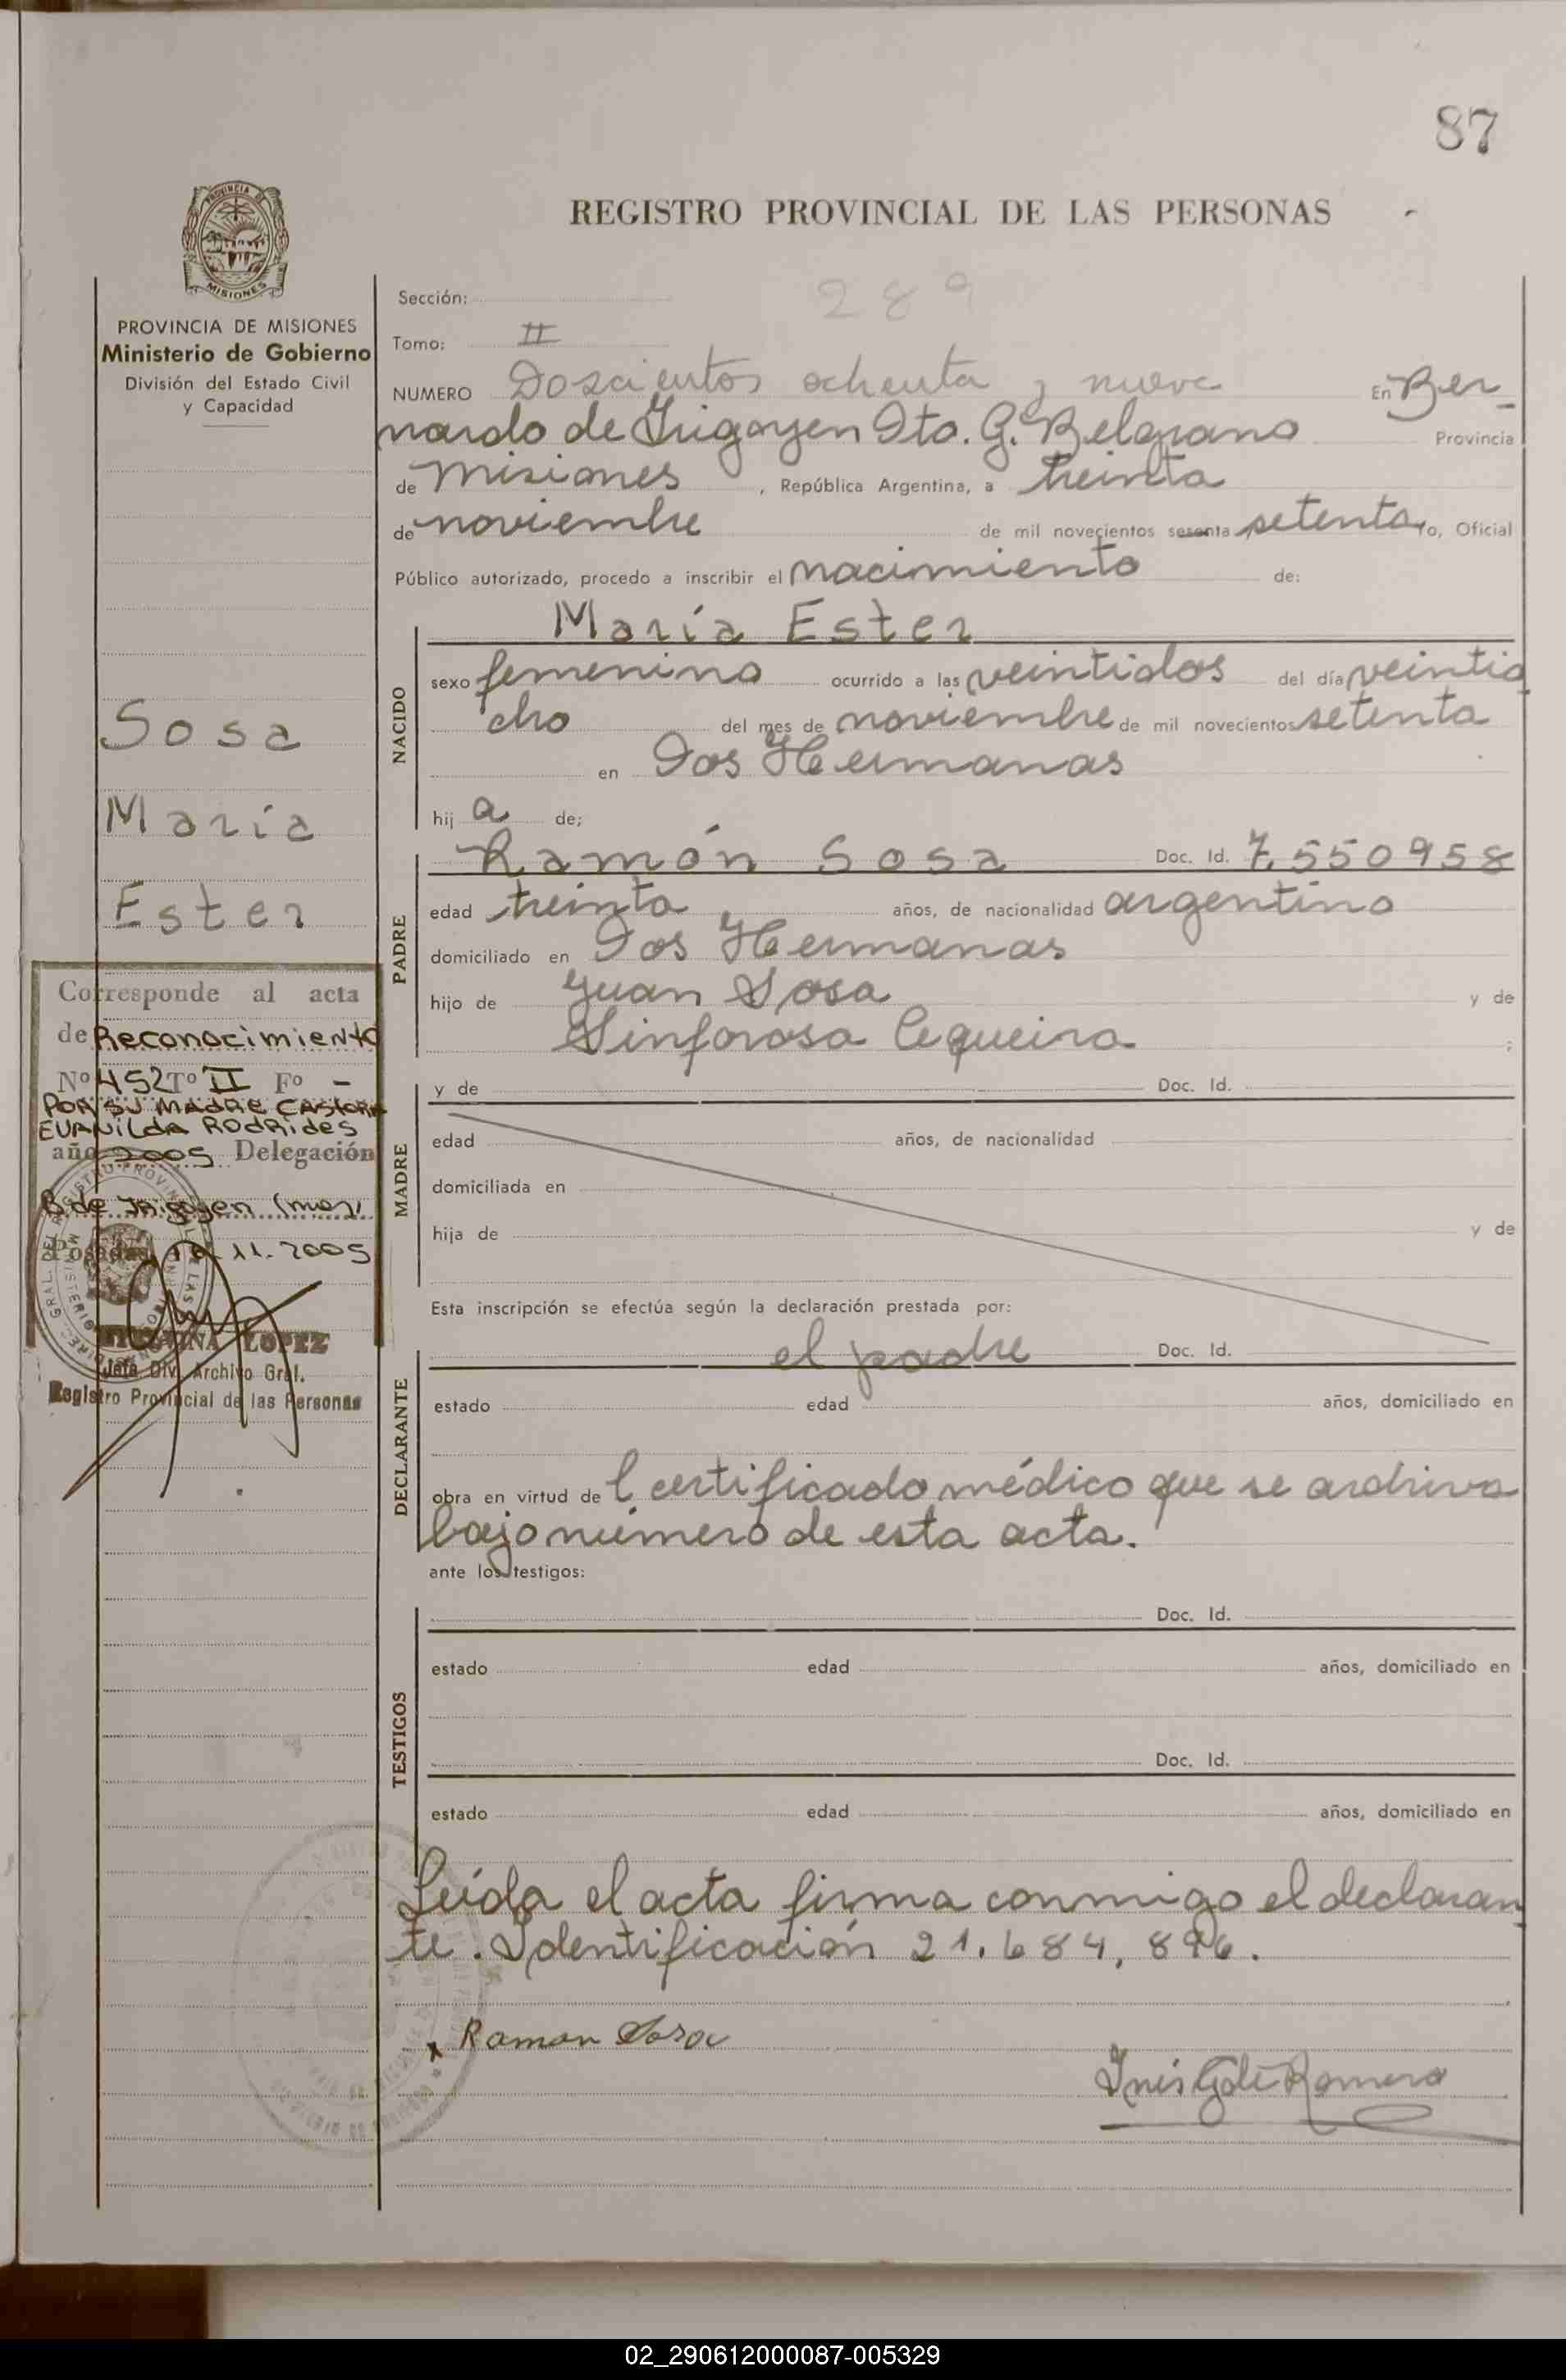 87
REGISTRO PROVINCIAL DE LAS PERSONAS
PROVINCIA DE
MISIONES
PROVINCIA DE MISIONES
Ministerio de Gobierno
División del Estado Civil
y Capacidad
Sosa
María
Ester
Corresponde al acta
de Reconocimiento
Nº 452 Tº II Fº -
POR SU MADRE CASTORA
EVANILDA RODRIDES
año 2005 Delegación
B de Irigoyen (mns)
Posadas, 11. 2005
LOPEZ
Jefe Div. Archivo Gral.
Registro Provincial de las Personas
Sección: 289
Tomo: II
NUMERO Doscientos ochenta y nueve En Ber-
nardo de Irigoyen Dto. G. Belgrano Provincia
de Misiones, República Argentina, a treinta
de noviembre de mil novecientos sesenta setenta yo, Oficial
Público autorizado, procedo a inscribir el nacimiento de:
María Ester
NACIDO
sexo femenino ocurrido a las veintidos del día veintio
cho del mes de noviembre de mil novecientos setenta
en Dos Hermanas
hij a de:
PADRE
Ramón Sosa Doc. Id. 7.550958
edad treinta años, de nacionalidad argentino
domiciliado en Dos Hermanas
hijo de Juan Sosa y de
Sinforosa Cequeira ;
MADRE
y de Doc. Id.
edad años, de nacionalidad
domiciliada en
hija de y de
Esta inscripción se efectúa según la declaración prestada por:
DECLARANTE
el padre Doc. Id.
estado edad años, domiciliado en
obra en virtud de l certificado médico que se archiva
bajo número de esta acta.
ante los testigos:
TESTIGOS
Doc. Id.
estado edad años, domiciliado en
Doc. Id.
estado edad años, domiciliado en
Leída el acta firma conmigo el declaran
te. Identificación 21.684.896.
x Ramon Sosa
Inés Romero
02_290612000087-005329